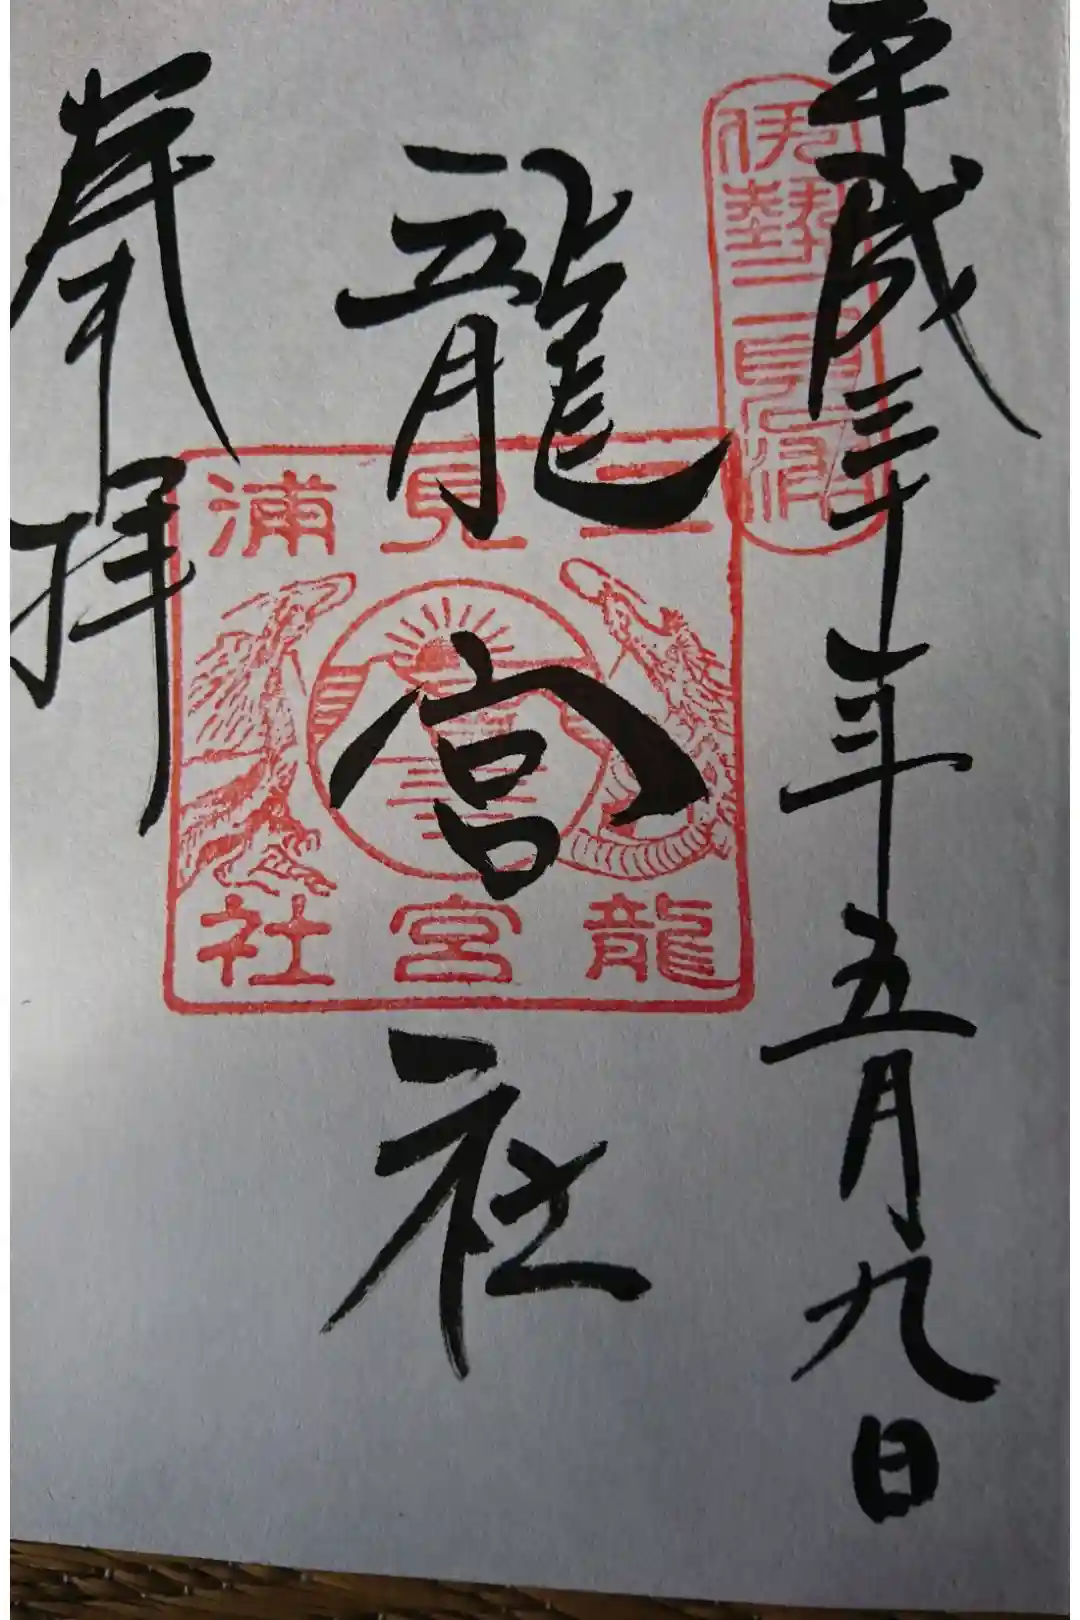 平成三十年五月九日
伊勢二見浦
龍宮社
二見浦
龍宮社
奉拝